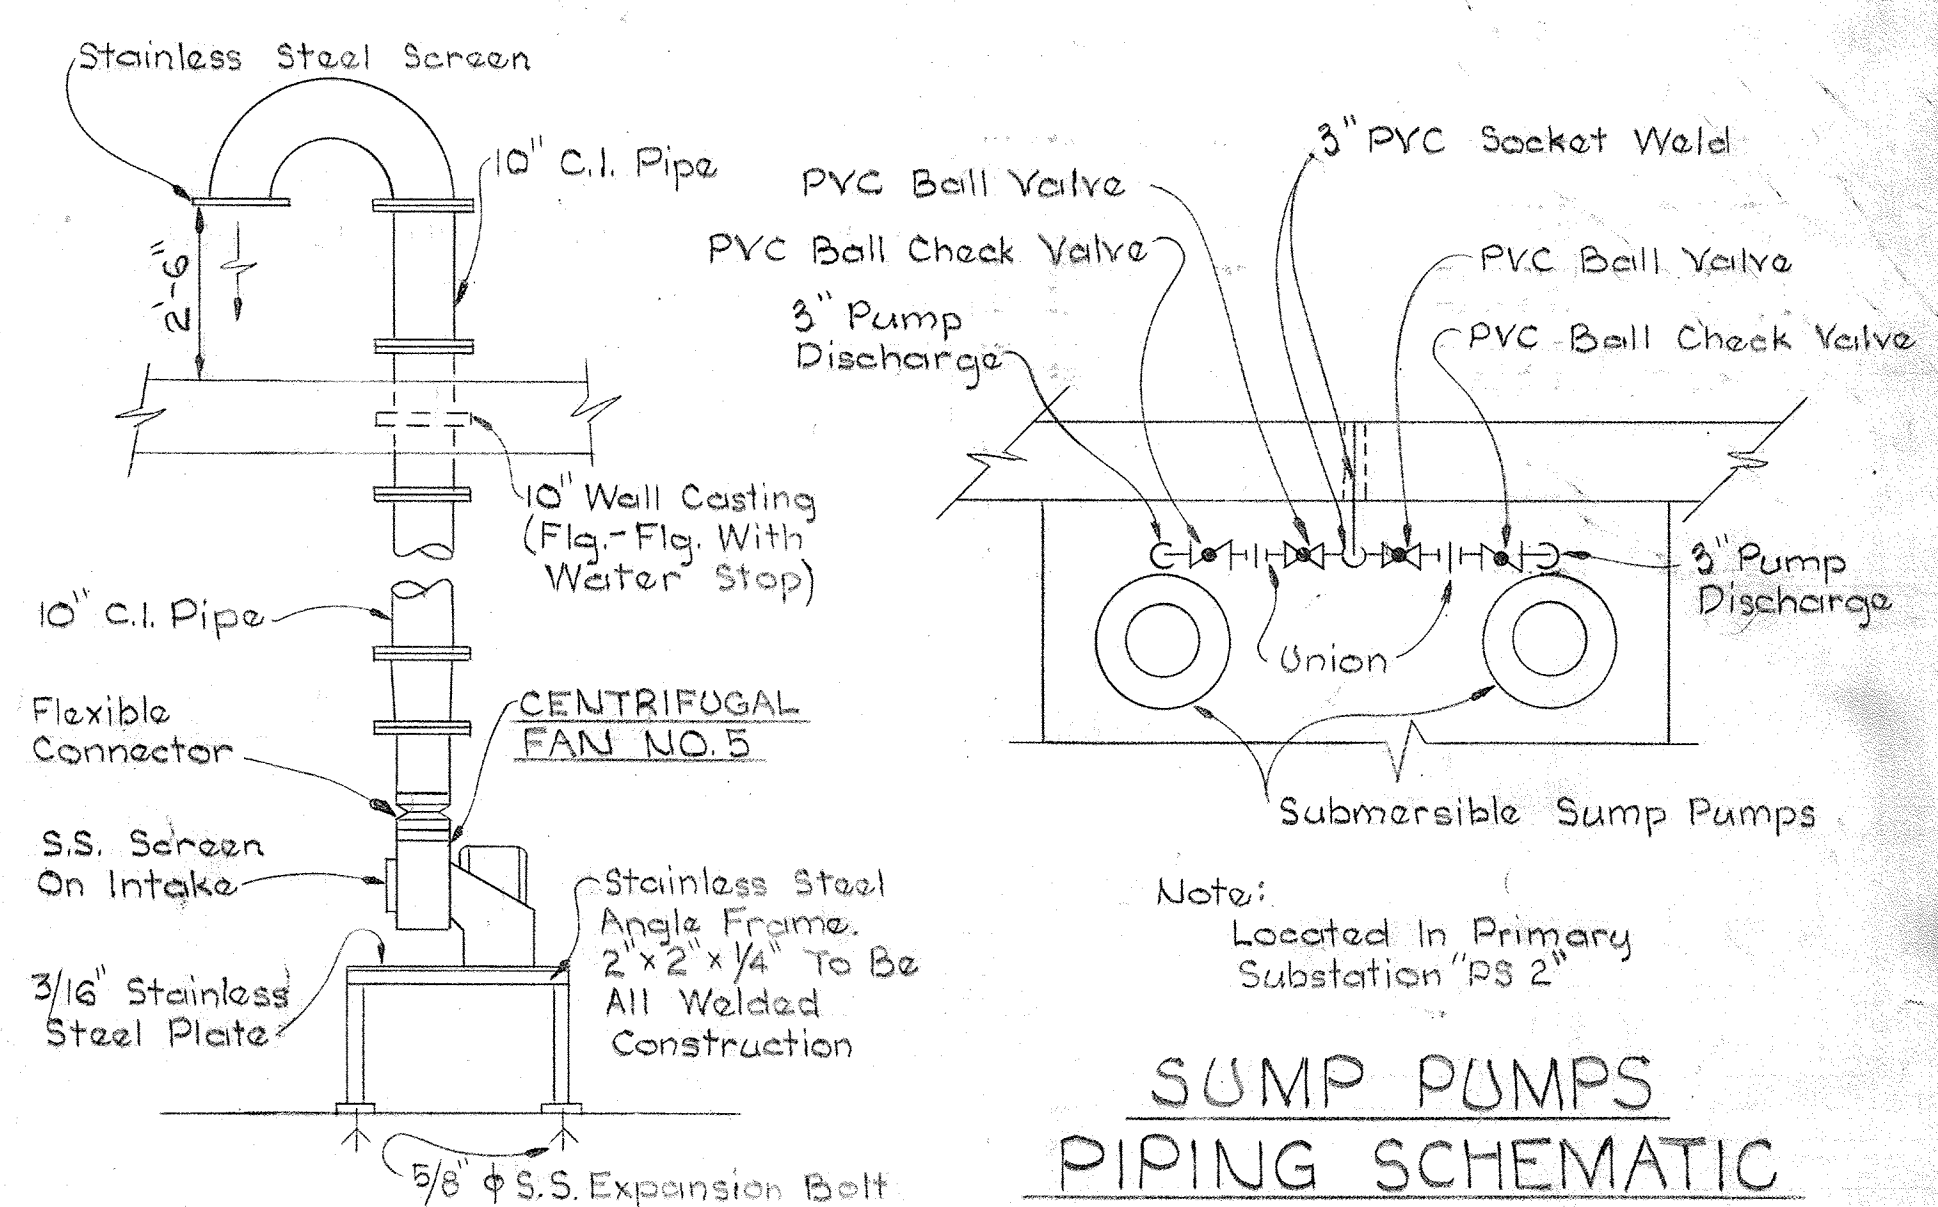 Stainless Steel Screen
10" C.I. Pipe
2'-6"
10" Wall Casting
(Flg.-Flg. With
Water Stop)
10" C.I. Pipe
Flexible
Connector
CENTRIFUGAL
FAN NO. 5
S.S. Screen
On Intake
Stainless Steel
Angle Frame.
2" x 2" x 1/4" To Be
All Welded
Construction
3/16" Stainless
Steel Plate
5/8" ϕ S.S. Expansion Bolt
3" PVC Socket Weld
PVC Ball Valve
PVC Ball Check Valve
3" Pump
Discharge
PVC Ball Valve
PVC Ball Check Valve
3" Pump
Discharge
Union
Submersible Sump Pumps
Note:
Located In Primary
Substation "PS 2"
SUMP PUMPS
PIPING SCHEMATIC